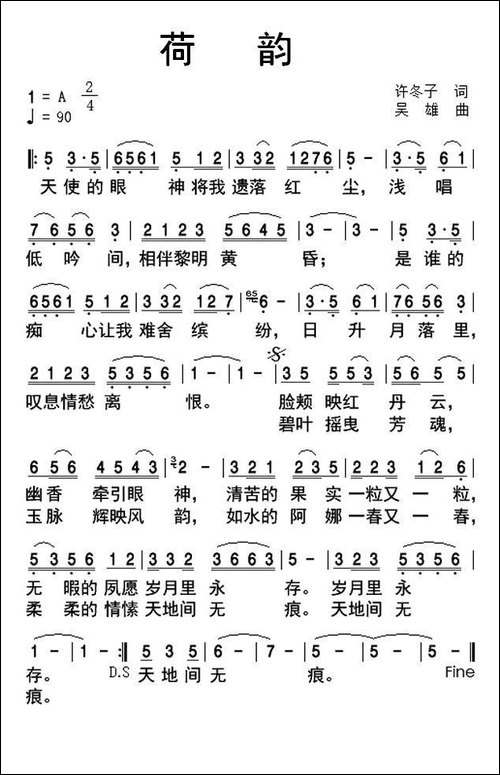 荷 韵
1 = A 2/4
♩ = 90
许冬子 词
吴 雄 曲
‖: 5 3·5 | 6561 5 12 | 3 32 1276 | 5 - | 3·5 61 |
天使的眼 神将我遗落 红 尘, 浅 唱
7656 3 | 2123 5645 | 3 - | 3 - | 5 3·5 |
低 吟 间, 相伴黎明 黄 昏; 是谁的
6561 512 | 332 127 | 656 - | 3·5 61 | 7656 5 |
痴 心让我 难舍 缤 纷, 日 升 月落里,
2123 5356 | 1 - | 1 - | 35 553 | 56 5 5 |
叹息情愁 离 恨。 脸颊 映红 丹 云,
碧叶 摇曳 芳 魂,
6 56 4543 | 32 - | 321 235 | 223 126 |
幽香 牵引眼 神, 清苦的 果 实 一粒又 一 粒,
玉脉 辉映风 韵, 如水的 阿 娜 一春又 一 春,
5356 12 | 332 3663 | 5 - | 332 5356 |
无 暇的 夙愿 岁月里 永 存。 岁月里 永
柔 柔的 情愫 天地间 无 痕。 天地间 无
1 - | 1 - :‖ 5 35 | 5 - | 6 - | 7 - | 5 - | 5 - | 5 - ‖
存。 D.S 天地间 无 痕。 Fine
痕。